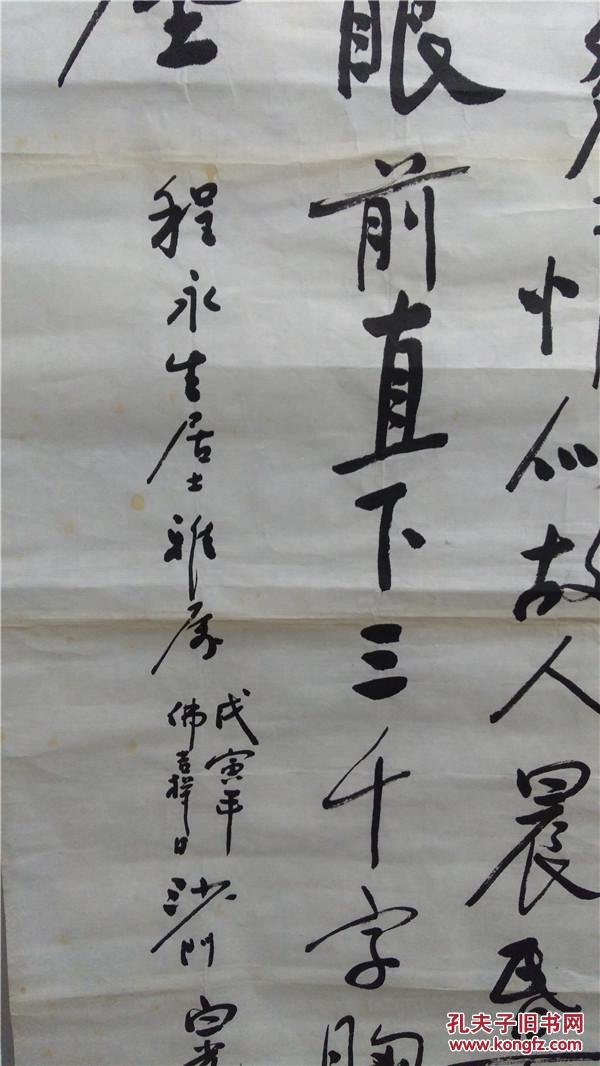 情似故人晨昏
眼前直下三千字胸
程永生居士雅属
戊寅年
佛喜择日
沙门
孔夫子旧书网
www.kongfz.com